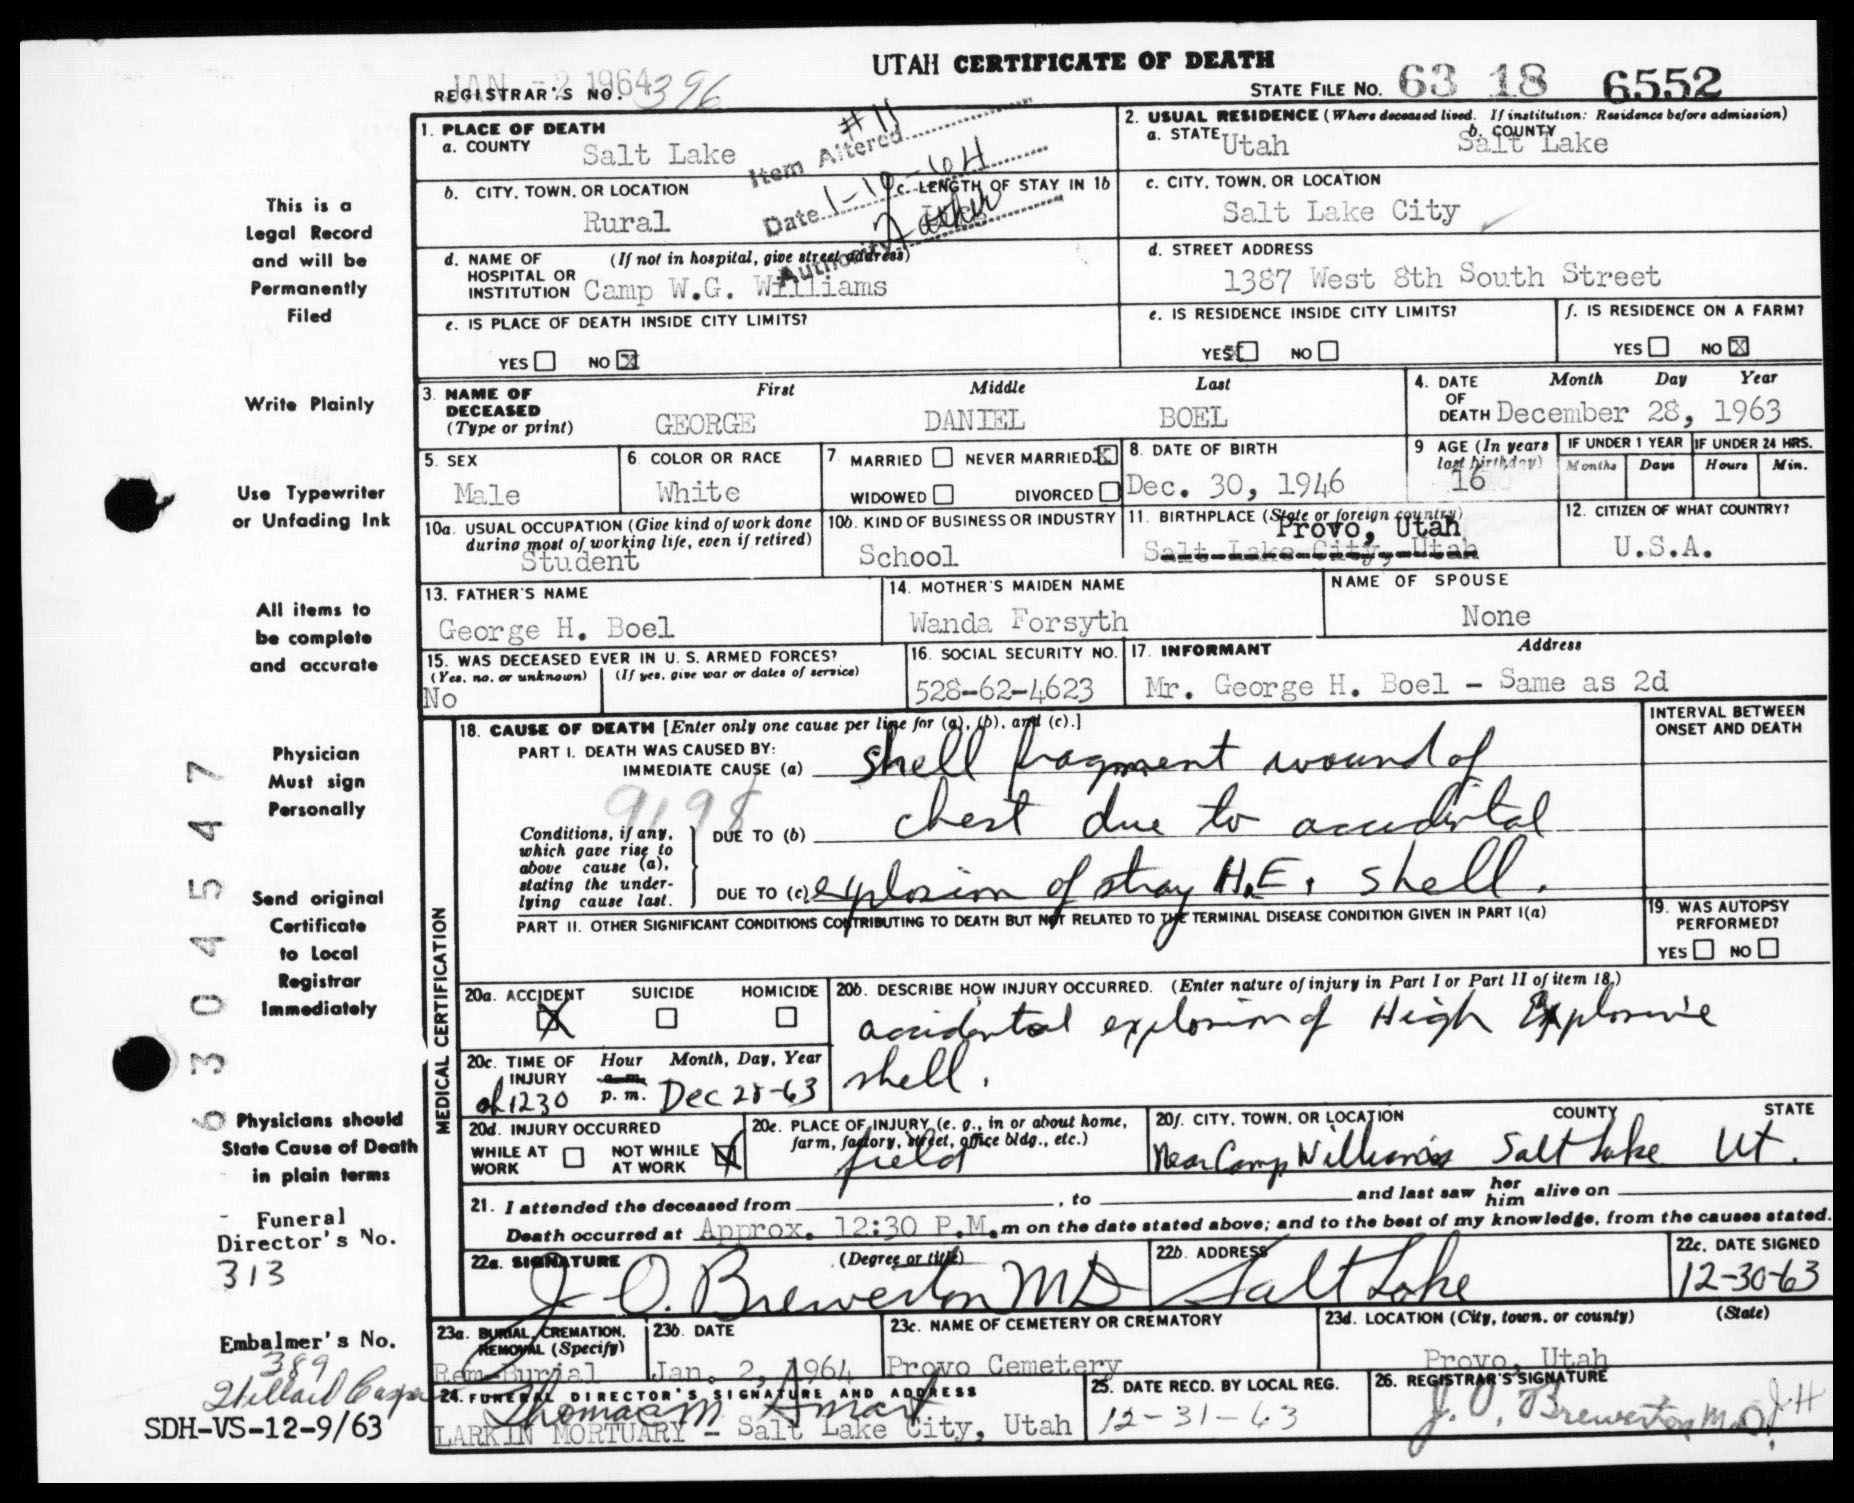 UTAH CERTIFICATE OF DEATH
JAN -2 1964
REGISTRAR'S NO. 396
STATE FILE NO. 63 18 6552
1. PLACE OF DEATH
a. COUNTY Salt Lake
#11
Item Altered
Date 1-10-64
Authority Father
2. USUAL RESIDENCE (Where deceased lived. If institution: Residence before admission)
a. STATE Utah b. COUNTY Salt Lake
b. CITY, TOWN, OR LOCATION Rural
c. LENGTH OF STAY IN 1b
c. CITY, TOWN, OR LOCATION
Salt Lake City
d. NAME OF HOSPITAL OR INSTITUTION (If not in hospital, give street address)
Camp W.G. Williams
d. STREET ADDRESS
1387 West 8th South Street
e. IS PLACE OF DEATH INSIDE CITY LIMITS?
YES NO X
e. IS RESIDENCE INSIDE CITY LIMITS?
YES X NO
f. IS RESIDENCE ON A FARM?
YES NO X
3. NAME OF DECEASED (Type or print)
First Middle Last
GEORGE DANIEL BOEL
4. DATE OF DEATH Month Day Year
December 28, 1963
5. SEX
Male
6. COLOR OR RACE
White
7 MARRIED NEVER MARRIED X
WIDOWED DIVORCED
8. DATE OF BIRTH
Dec. 30, 1946
9 AGE (In years last birthday)
16
IF UNDER 1 YEAR IF UNDER 24 HRS.
Months Days Hours Min.
10a. USUAL OCCUPATION (Give kind of work done during most of working life, even if retired)
Student
10b. KIND OF BUSINESS OR INDUSTRY
School
11. BIRTHPLACE (State or foreign country)
Provo, Utah
Salt Lake City, Utah
12. CITIZEN OF WHAT COUNTRY?
U.S.A.
13. FATHER'S NAME
George H. Boel
14. MOTHER'S MAIDEN NAME
Wanda Forsyth
NAME OF SPOUSE
None
15. WAS DECEASED EVER IN U. S. ARMED FORCES?
(Yes, no, or unknown) (If yes, give war or dates of service)
No
16. SOCIAL SECURITY NO.
528-62-4623
17. INFORMANT Address
Mr. George H. Boel - Same as 2d
MEDICAL CERTIFICATION
18. CAUSE OF DEATH [Enter only one cause per line for (a), (b), and (c).]
PART I. DEATH WAS CAUSED BY:
IMMEDIATE CAUSE (a) shell fragment wound of
9198
Conditions, if any, which gave rise to above cause (a), stating the underlying cause last.
DUE TO (b) chest due to accidental
DUE TO (c) explosion of stray H.E. shell.
INTERVAL BETWEEN ONSET AND DEATH
PART II. OTHER SIGNIFICANT CONDITIONS CONTRIBUTING TO DEATH BUT NOT RELATED TO THE TERMINAL DISEASE CONDITION GIVEN IN PART I(a)
19. WAS AUTOPSY PERFORMED?
YES NO
20a. ACCIDENT X SUICIDE HOMICIDE
20b. DESCRIBE HOW INJURY OCCURRED. (Enter nature of injury in Part I or Part II of item 18.)
accidental explosion of High Explosive
shell.
20c. TIME OF INJURY Hour Month, Day, Year
1230 a.m. p.m. Dec 28-63
20d. INJURY OCCURRED
WHILE AT WORK NOT WHILE AT WORK X
20e. PLACE OF INJURY (e. g., in or about home, farm, factory, street, office bldg., etc.)
field
20f. CITY, TOWN, OR LOCATION COUNTY STATE
Near Camp Williams Salt Lake Ut.
21. I attended the deceased from , to and last saw her him alive on
Death occurred at Approx. 12:30 P.M. m on the date stated above; and to the best of my knowledge, from the causes stated.
22a. SIGNATURE (Degree or title)
J. O. Brewerton MD
22b. ADDRESS
Salt Lake
22c. DATE SIGNED
12-30-63
23a. BURIAL, CREMATION, REMOVAL (Specify)
Rem-Burial
23b. DATE
Jan. 2, 1964
23c. NAME OF CEMETERY OR CREMATORY
Provo Cemetery
23d. LOCATION (City, town, or county) (State)
Provo, Utah
24. FUNERAL DIRECTOR'S SIGNATURE AND ADDRESS
Thomas M Smart
LARKIN MORTUARY - Salt Lake City, Utah
25. DATE RECD. BY LOCAL REG.
12-31-63
26. REGISTRAR'S SIGNATURE
J. O. Brewerton M.D. JH
This is a
Legal Record
and will be
Permanently
Filed
Write Plainly
Use Typewriter
or Unfading Ink
All items to
be complete
and accurate
Physician
Must sign
Personally
Send original
Certificate
to Local
Registrar
Immediately
Physicians should
State Cause of Death
in plain terms
Funeral
Director's No.
313
Embalmer's No.
389
SDH-VS-12-9/63
6304547